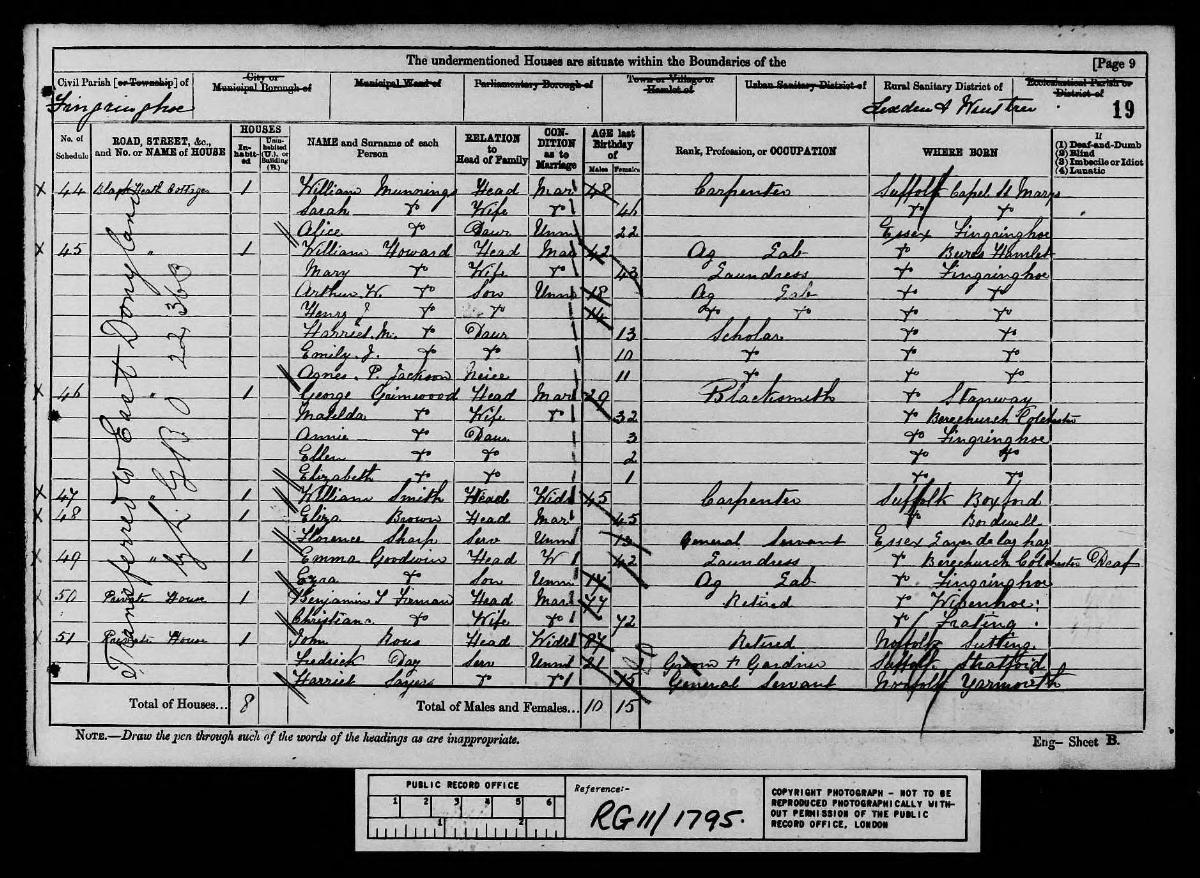 The undermentioned Houses are situate within the Boundaries of the [Page 9
Civil Parish [or Township] of City or Municipal Borough of Municipal Ward of Parliamentary Borough of Town or Village or Hamlet of Urban Sanitary District of Rural Sanitary District of Ecclesiastical Parish or District of
Fingringhoe Lexden & Winstree 19
No. of Schedule ROAD, STREET, &c., and No. or NAME of HOUSE HOUSES Inhabited Uninhabited (U.), or Building (B.) NAME and Surname of each Person RELATION to Head of Family CONDITION as to Marriage AGE last Birthday of Males Females Rank, Profession, or OCCUPATION WHERE BORN If (1) Deaf-and-Dumb (2) Blind (3) Imbecile or Idiot (4) Lunatic
44 Black Heath Cottages 1 William Munnings Head Mar 48 Carpenter Suffolk Capel St Marys
Sarah Do Wife Do 46 Do Do
Alice Do Daur Unm 22 Essex Fingringhoe
45 " 1 William Howard Head Mar 42 Ag Lab Do Bures Hamlet
Mary Do Wife Do 43 Laundress Do Fingringhoe
Arthur W. Do Son Unm 18 Ag Lab Do Do
Henry J Do Do 14 Do Do Do Do
Harriet M. Do Daur 13 Scholar Do Do
Emily J. Do Do 10 Do Do Do
Agnes P. Jackson Neice 11 Do Do Do
46 " 1 George Grimwood Head Mar 29 Blacksmith Do Stanway
Matilda Do Wife Do 32 Do Berechurch Colchester
Annie Do Daur 3 Do Fingringhoe
Ellen Do Do 2 Do Do
Elizabeth Do Do 1 Do Do
47 " 1 William Smith Head Widr 45 Carpenter Suffolk Boxford
48 1 Eliza Brown Head Mar 45 Do
Florence Sharp Serv Unm General Servant Essex Layer de la hay
49 " 1 Emma Goodwin Head W 42 Laundress Do Berechurch Colchester Deaf
Ezra Do Son Unm 14 Ag Lab Do Fingringhoe
50 Private House 1 Benjamin Head Mar 77 Retired Do Wivenhoe
Christiana Do Wife Do 72 Do Frating
51 Private House 1 John Rous Head Widr 87 Retired Norfolk
Fredrick Day Serv Unm 21 Groom & Gardner Suffolk Stratford
Harriet Sayers Do Do 15 General Servant Norfolk Yarmouth
Transferred to East Donyland
Total of Houses... 8 Total of Males and Females... 10 15
NOTE.—Draw the pen through such of the words of the headings as are inappropriate.
Eng— Sheet B.
PUBLIC RECORD OFFICE
1 2 3 4 5 6
1 2
Reference:-
RG11/1795.
COPYRIGHT PHOTOGRAPH - NOT TO BE
REPRODUCED PHOTOGRAPHICALLY WITH-
OUT PERMISSION OF THE PUBLIC
RECORD OFFICE, LONDON